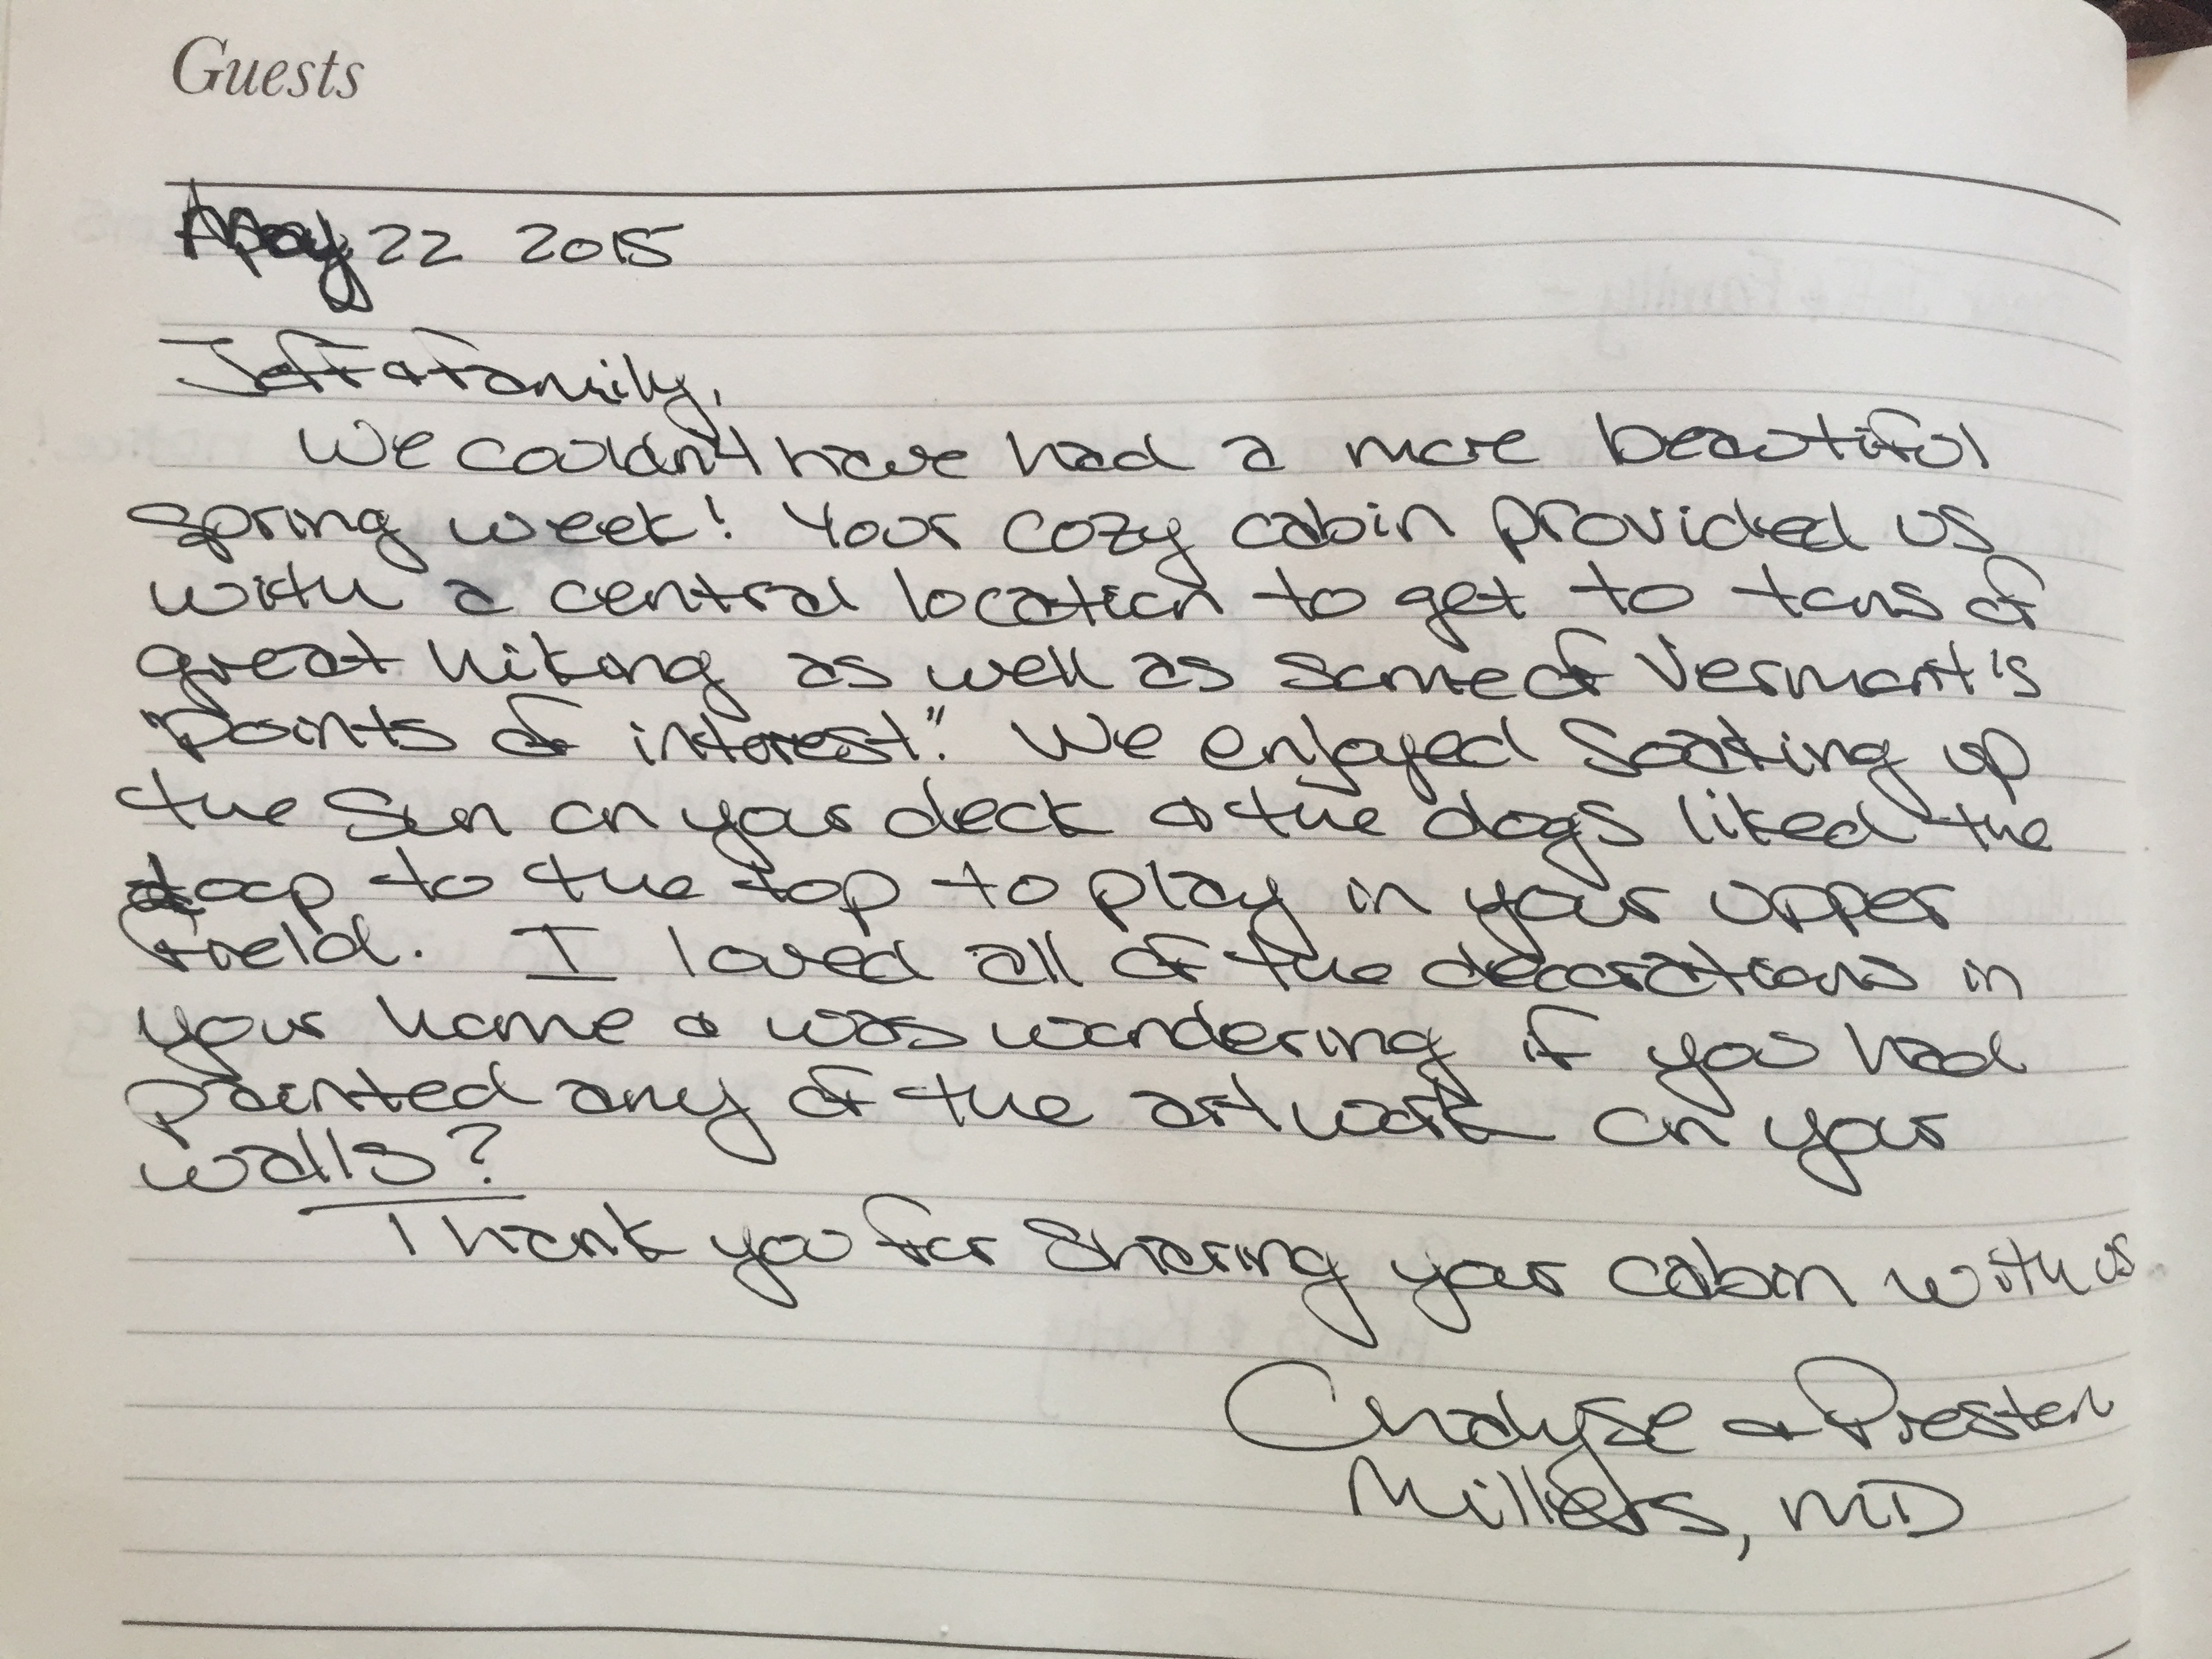 Guests
May 22 2015
Jeff & Family,
We couldn't have had a more beautiful
spring week! Your cozy cabin provided us
with a central location to get to tons of
great hiking as well as some of Vermont's
"points of interest." We enjoyed soaking up
the sun on your deck & the dogs liked the
loop to the top to play in your upper
field. I loved all of the decorations in
your home & was wondering if you had
painted any of the artwork on your
walls?
Thank you for sharing your cabin with us
& Preston
MD